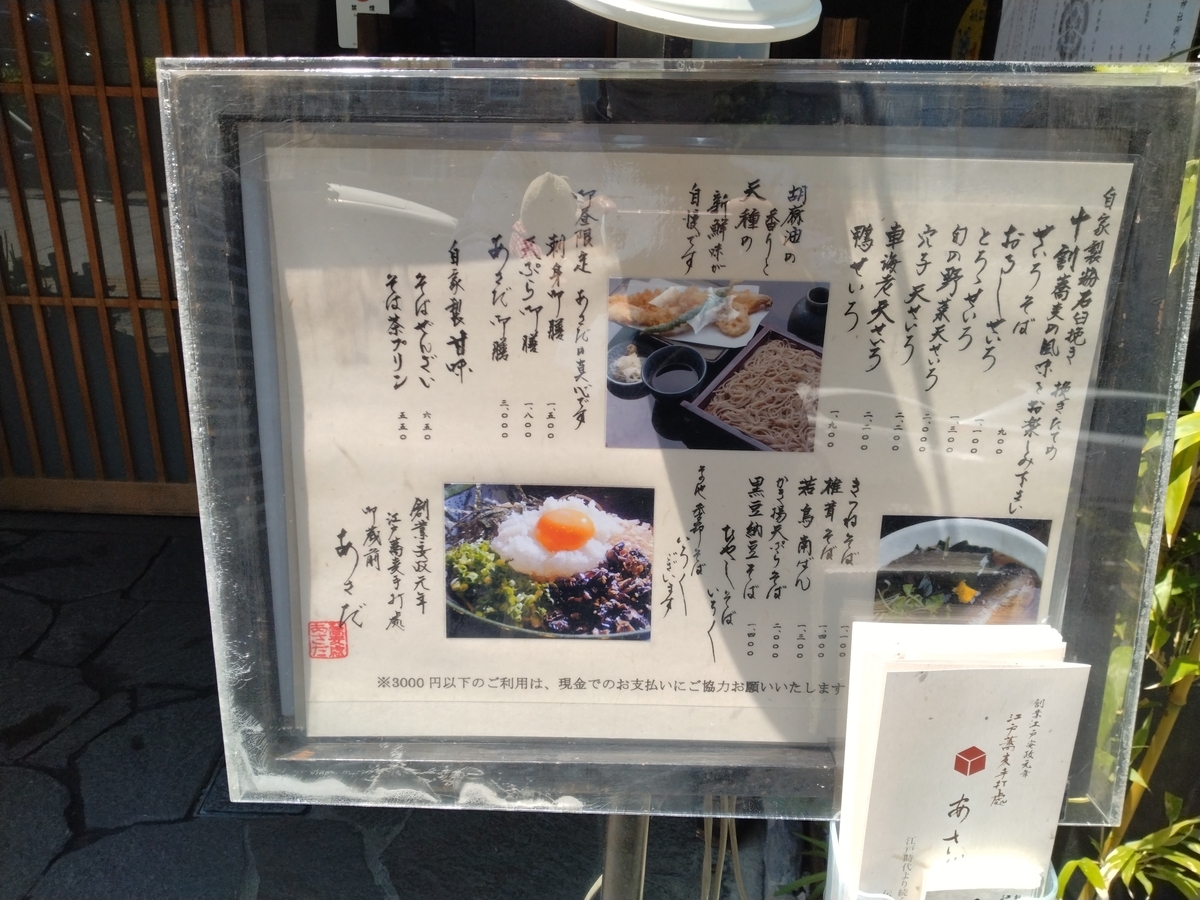 自家製粉石臼挽き 挽きたての
十割蕎麦の風味をお楽しみ下さい
せいろそば 九〇〇
おろしせいろ 一、一〇〇
とろろせいろ 一、三〇〇
旬の野菜天せいろ 二、〇〇〇
穴子天せいろ 二、二〇〇
車海老天せいろ 二、二〇〇
鴨せいろ 一、九〇〇
胡麻油の
香りと
天種の
新鮮味が
自慢です
御昼限定 あさだの真心です
刺身御膳 一、五〇〇
天ぷら御膳 一、八〇〇
あさだ御膳 三、〇〇〇
自家製甘味
そばぜんざい 六五〇
そば茶プリン 五五〇
きつねそば 一、一〇〇
椎茸そば 一、四〇〇
若鳥南ばん 一、三〇〇
かき揚天ぷらそば 二、〇〇〇
黒豆納豆そば 一、四〇〇
ひやしそば いろく
その他 季節そば
いろく
ございます
創業安政元年
江戸蕎麦手打處
御蔵前
あさだ
※3000円以下のご利用は、現金でのお支払いにご協力お願いいたします
創業江戸安政元年
江戸蕎麦手打處
あさ
江戸時代より続